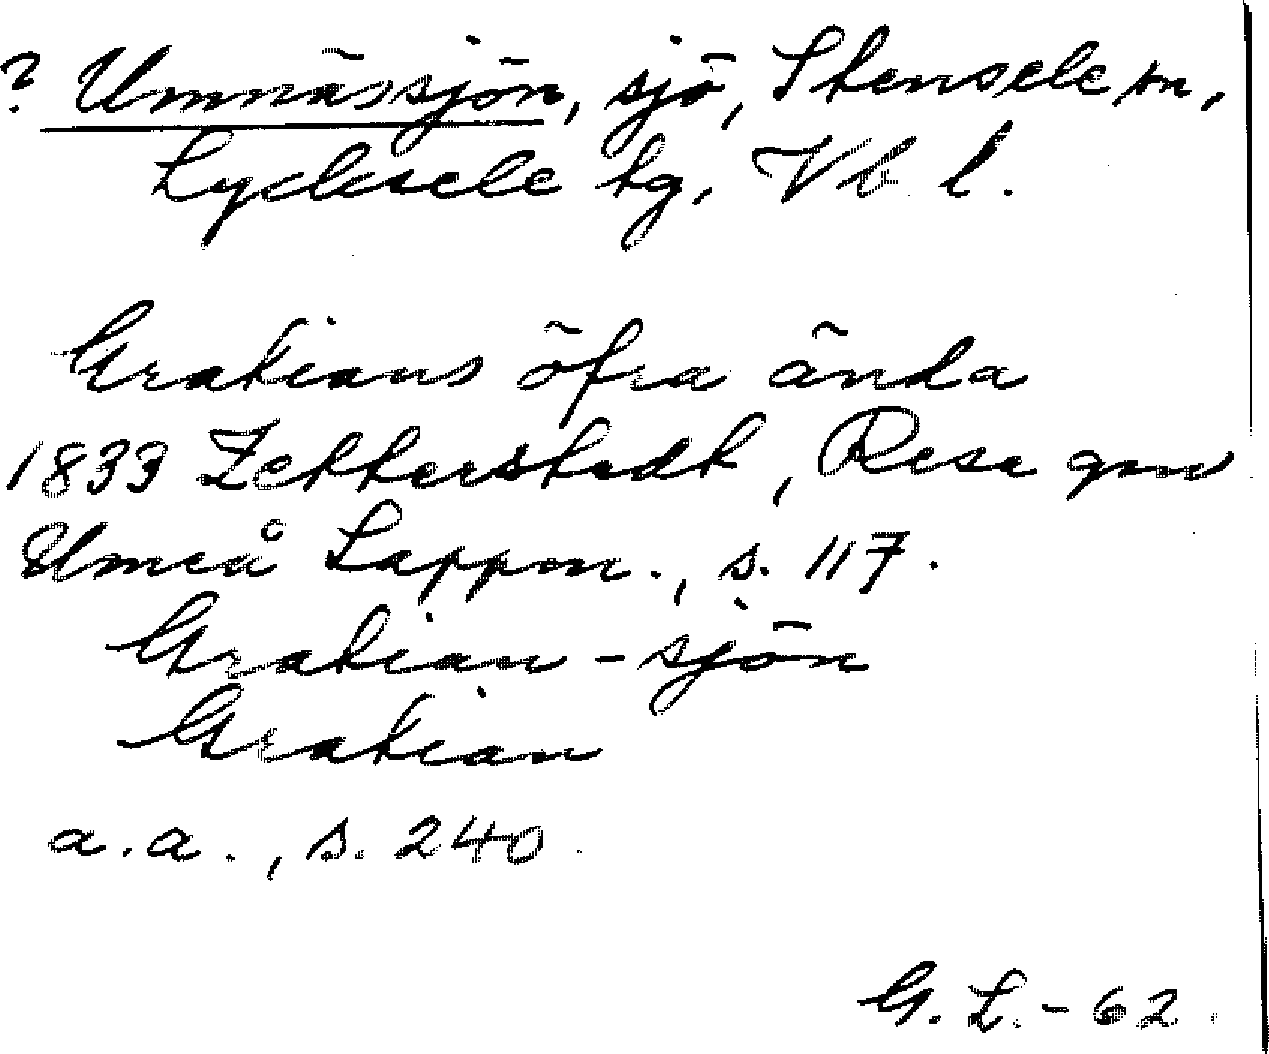 ? Umnässjön, sjö, Stensele sn,
Lycksele tg, Vb l.
Gratians öfra ända
1833 Zetterstedt, Resa gm
Umeå Lappm., s. 117.
Gratian-sjön
Gratian
a.a., s. 240.
G. L. - 62.